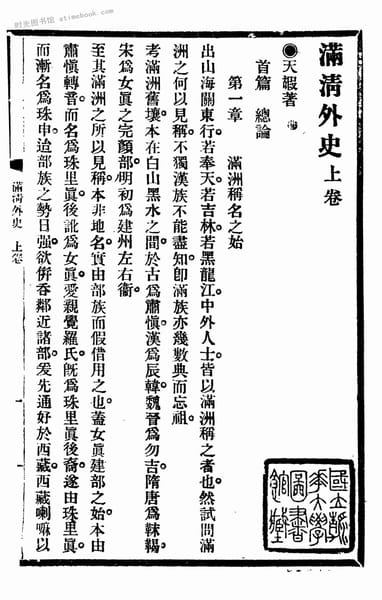 时光图书馆 · etimebook.com
滿清外史 上卷
◉天嘏著
首篇 總論
第一章 滿洲稱名之始
出山海關東行。若奉天若吉林若黑龍江。中外人士皆以滿洲稱之者也。然試問滿
洲之何以見稱。不獨漢族不能盡知。卽滿族亦幾數典而忘祖。
考滿洲舊壤。本在白山黑水之間。於古爲肅愼。漢爲辰韓。魏晉爲勿吉。隋唐爲靺鞨。
宋爲女眞之完顏部。明初爲建州左右衞。
至其滿洲之所以見稱。本非地名。實由部族而假借用之也。蓋女眞建部之始。本由
肅愼轉音。而名爲珠里眞。後訛爲女眞。愛親覺羅氏。旣爲珠里眞後裔。遂由珠里眞。
而漸名爲珠申。迨部族之勢日强。欲倂吞鄰近諸部。爰先通好於西藏。西藏喇嘛以
滿清外史 上卷
國立清
華大學
圖書
館藏